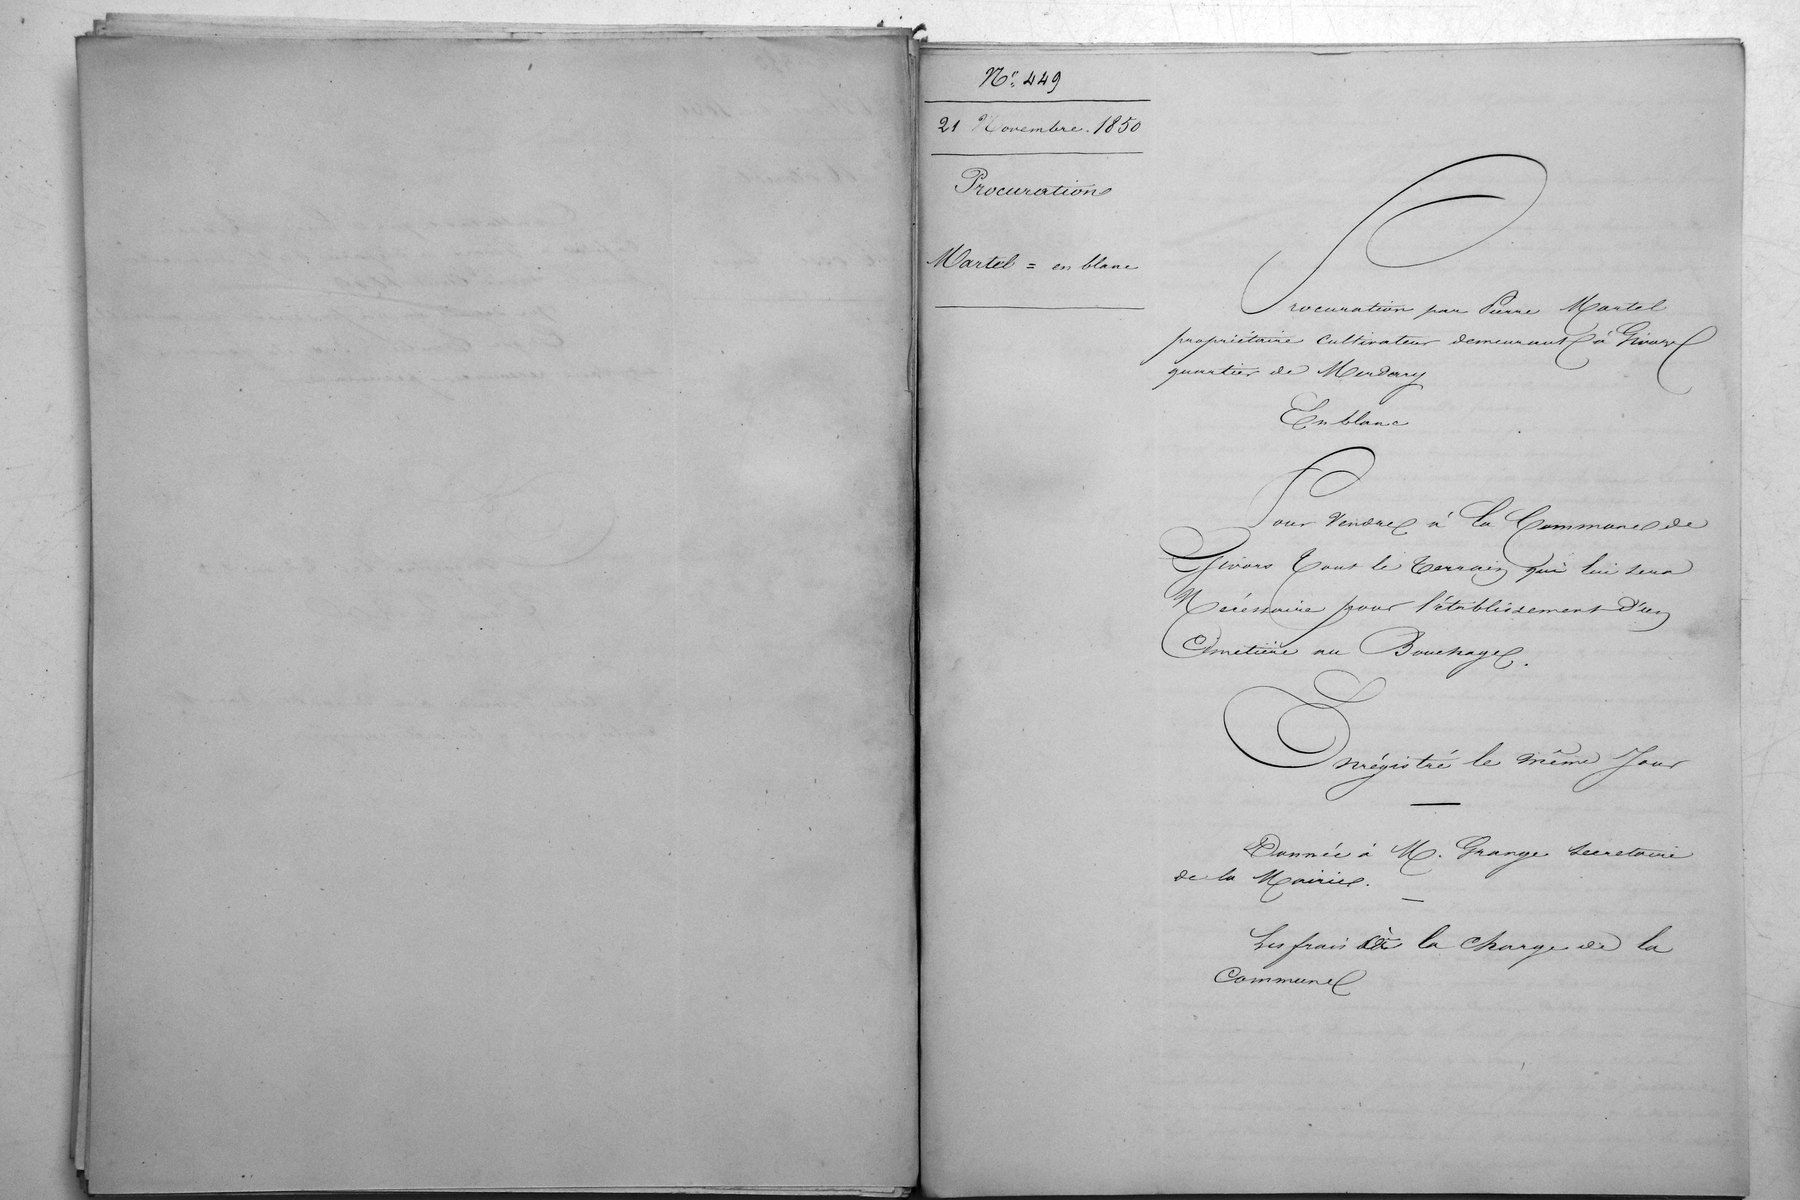 N° 449
21 Novembre 1850
Procuration
Martel = en blanc
Procuration par Pierre Martel
propriétaire cultivateur demeurant à Givors
quartier de Merdary
En blanc
Pour vendre à la Commune de
Givors tout le terrain qui lui sera
Nécessaire pour l'établissement d'un
Cimetière au Bouchage.
Enrégistré le même Jour
Donnée à M. Grange secretaire
de la Mairie.
Les frais à la charge de la
Commune